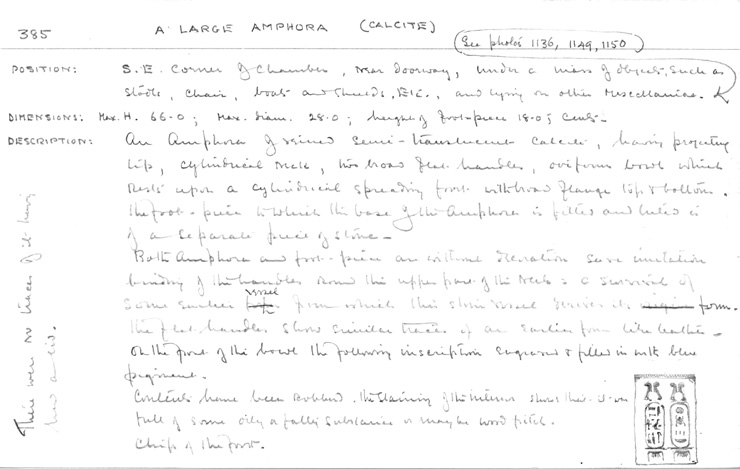 385
A LARGE AMPHORA (CALCITE)
See photos 1136, 1149, 1150
POSITION: S.E. Corner of Chamber, near doorway, under a mass of objects, such as
stools, chair, boats and shields, Etc., and lying on other miscellaniae.
DIMENSIONS: Max. H. 66.0; Max. diam. 28.0; height of foot-piece 18.0; cents.
DESCRIPTION: An Amphora of veined semi-translucent calcite, having projecting
lip, cylindrical neck, two broad flat handles, oviform bowl which
rests upon a cylindrical spreading foot with broad flange top & bottom.
The foot-piece to which the base of the Amphora is fitted and luted is
of a separate piece of stone.
Both Amphora and foot-piece are without decoration save imitation
binding of the handles round the upper part of the neck: a survival of
some earlier vessel from which this stone vessel derives its form.
The flat handles show similar traces of an earlier form like leather.
On the front of the bowl the following inscription engraved & filled in with blue
pigment.
Contents have been robbed. The staining of the interior shows that it was
full of some oily or fatty substance or maybe wood pitch.
Chips of the foot.
There were no traces of it having
had a lid.